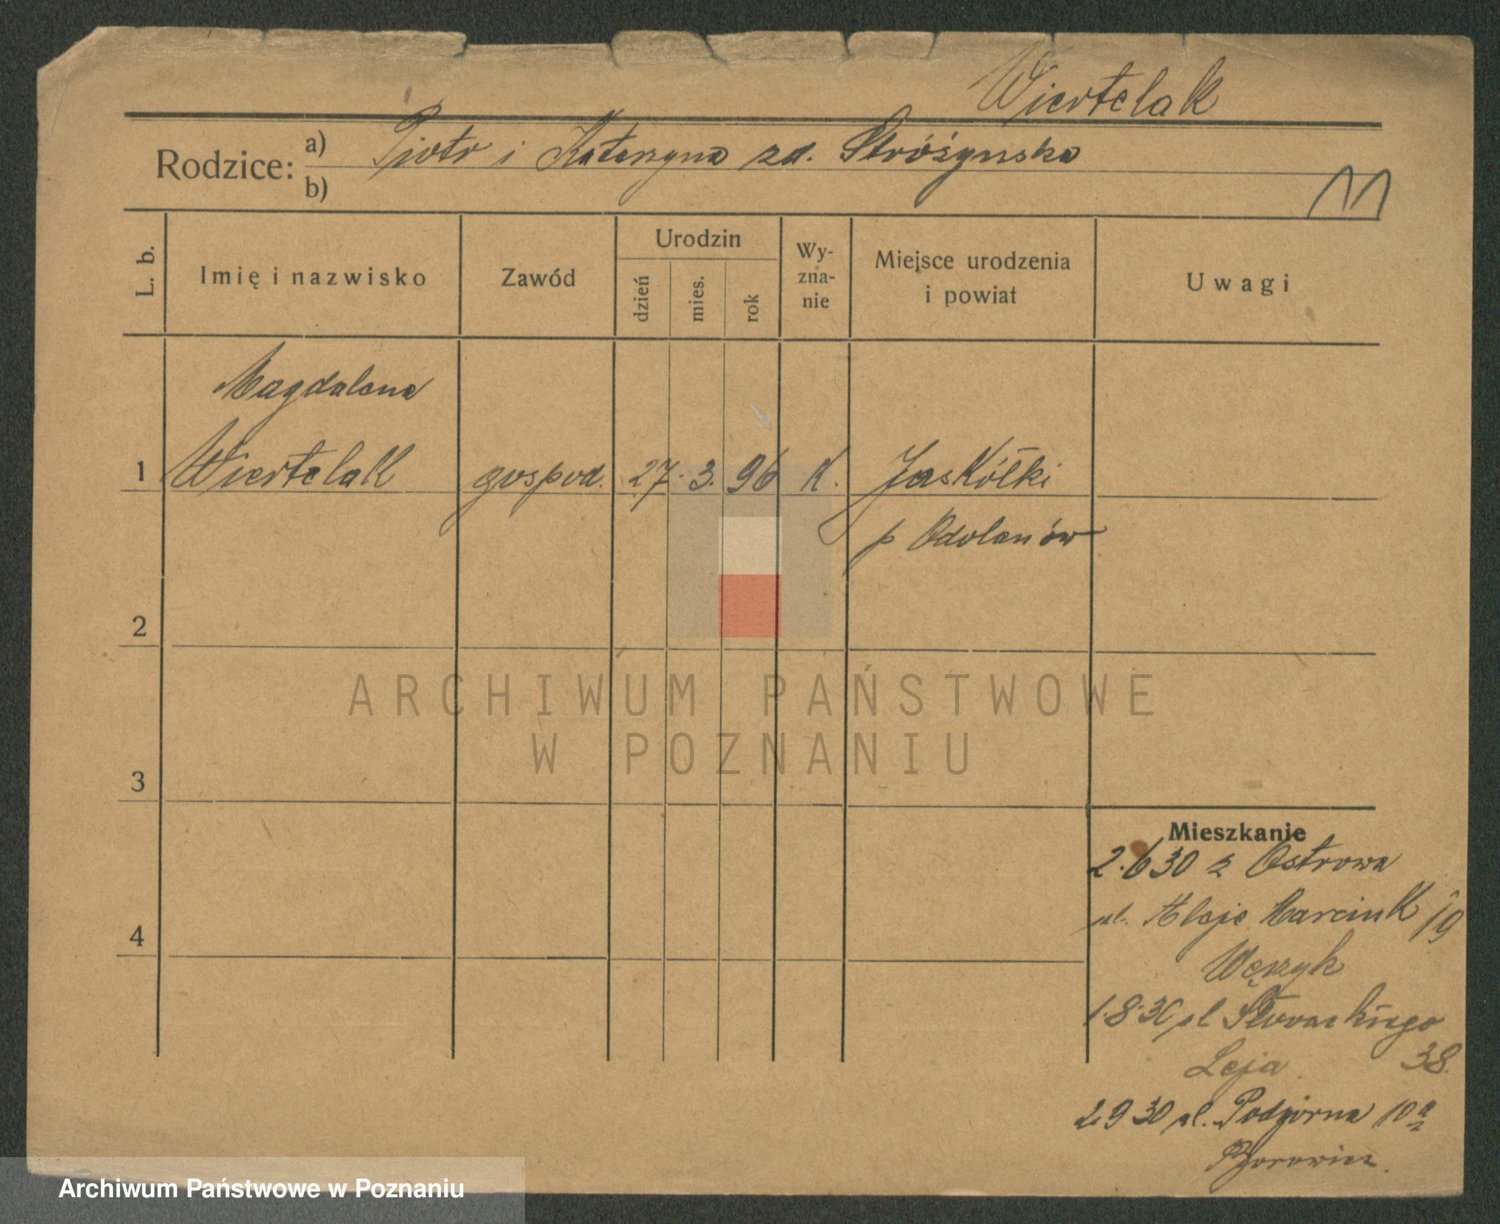 Wiertelak
Rodzice: a) Piotr i Katarzyna zd. Stróżynska
b)
L. b.
Imię i nazwisko
Zawód
Urodzin
dzień
mies.
rok
Wy-
zna-
nie
Miejsce urodzenia
i powiat
Uwagi
Magdalena
1 Wiertelak gospod. 27. 3. 96 K. Jaskółki
p Odolanów
2
3
4
ARCHIWUM PAŃSTWOWE
W POZNANIU
Mieszkanie
2.6 30 z Ostrowa
ul. Aleje Marcink 19
Węzyk
1.8.30 ul Słowackiego
Leja 38.
2.9 30 ul. Podgórna 10a
Archiwum Państwowe w Poznaniu